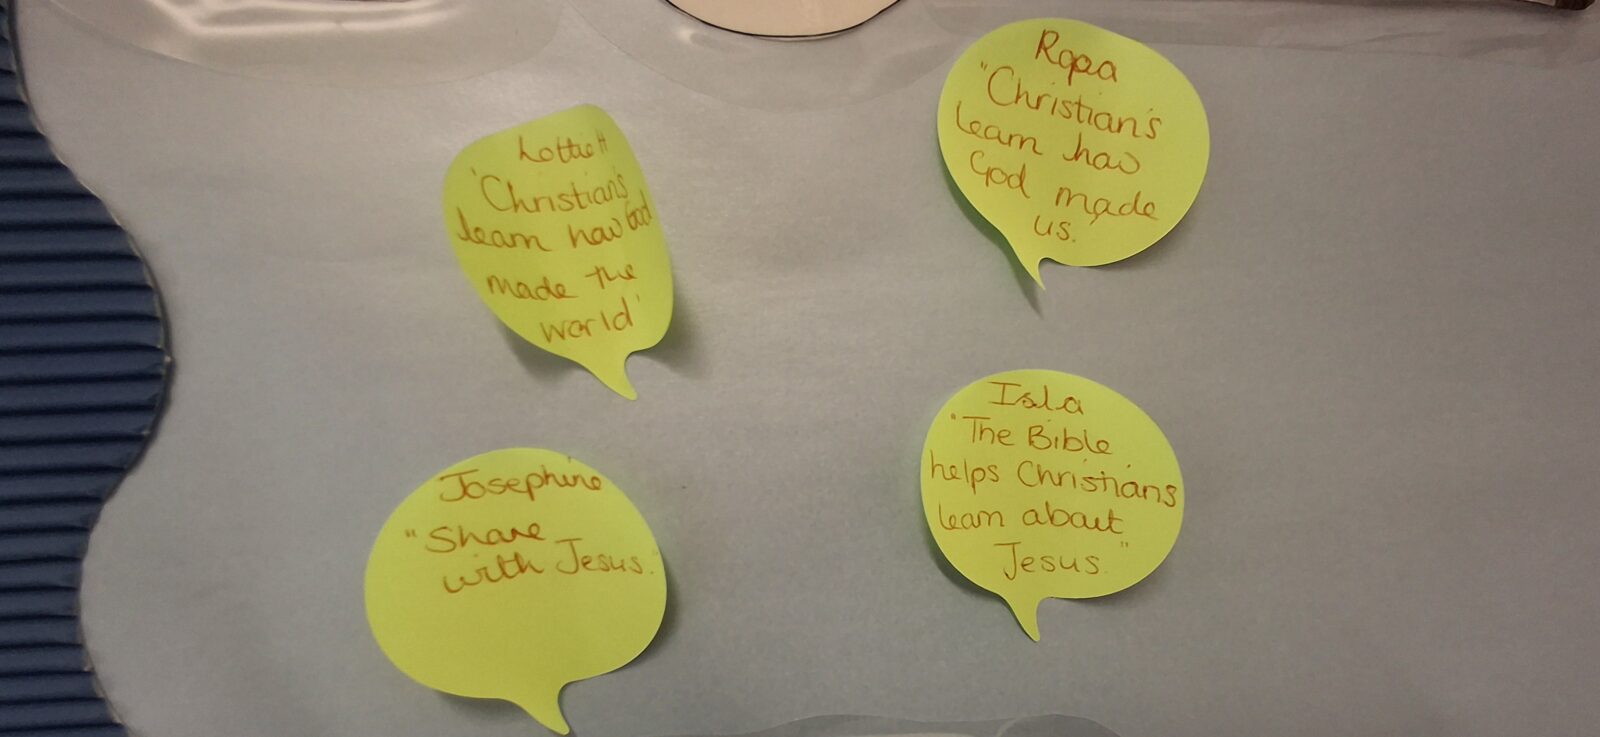 Lottie H
'Christian's
learn how God
made the
world'
Ropa
"Christian's
learn how
God made
us.
Josephine
"Share
with Jesus."
Isla
"The Bible
helps Christians
learn about
Jesus"